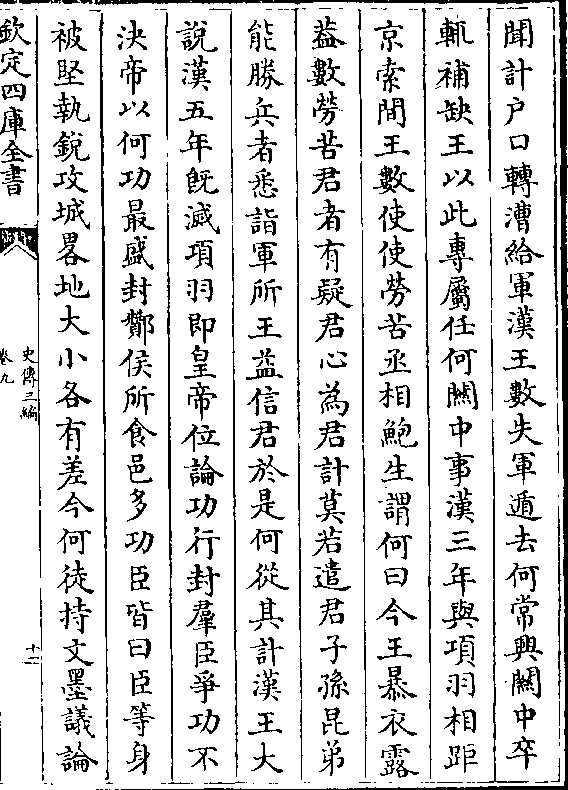 聞計户口轉漕給軍漢王數失軍遁去何常興闗中卒
輒補缺王以此專屬任何闗中事漢三年與項羽相距
京索間王數使使勞苦丞相鮑生謂何曰今王暴衣露
葢數勞苦君者有疑君心為君計莫若遣君子孫昆弟
能勝兵者悉詣軍所王益信君於是何從其計漢王大
説漢五年既滅項羽即皇帝位論功行封羣臣爭功不
決帝以何功最盛封酇侯所食邑多功臣皆曰臣等身
被堅執銳攻城畧地大小各有差今何徒持文墨議論
欽定四庫全書
史傳三編
卷九
十二